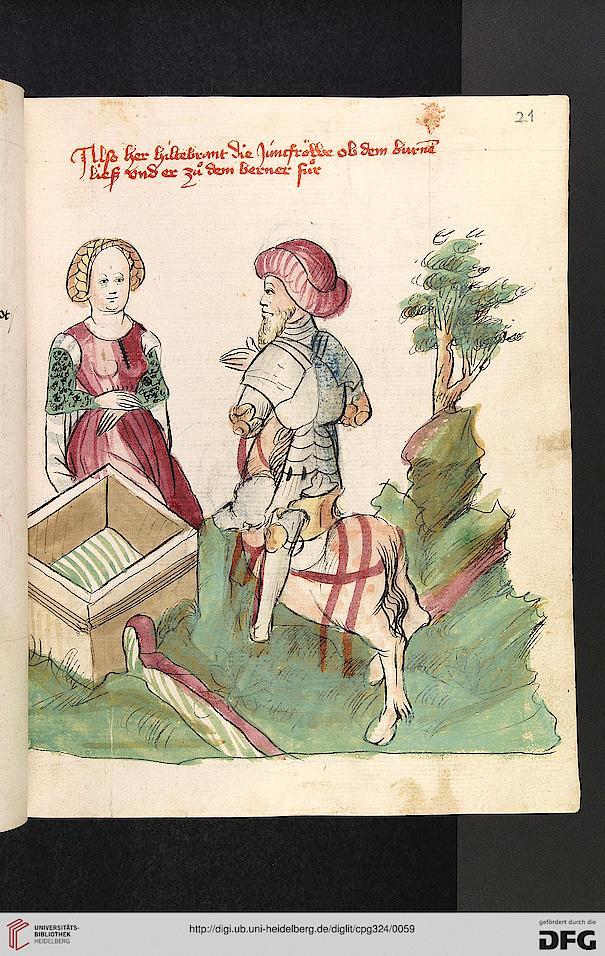 21
Also her hiltebrant die Juncfröwe ob dem burnē
ließ vnd er zů dem berner fůr
UNIVERSITÄTS-
BIBLIOTHEK
HEIDELBERG
http://digi.ub.uni-heidelberg.de/diglit/cpg324/0059
gefördert durch die
DFG